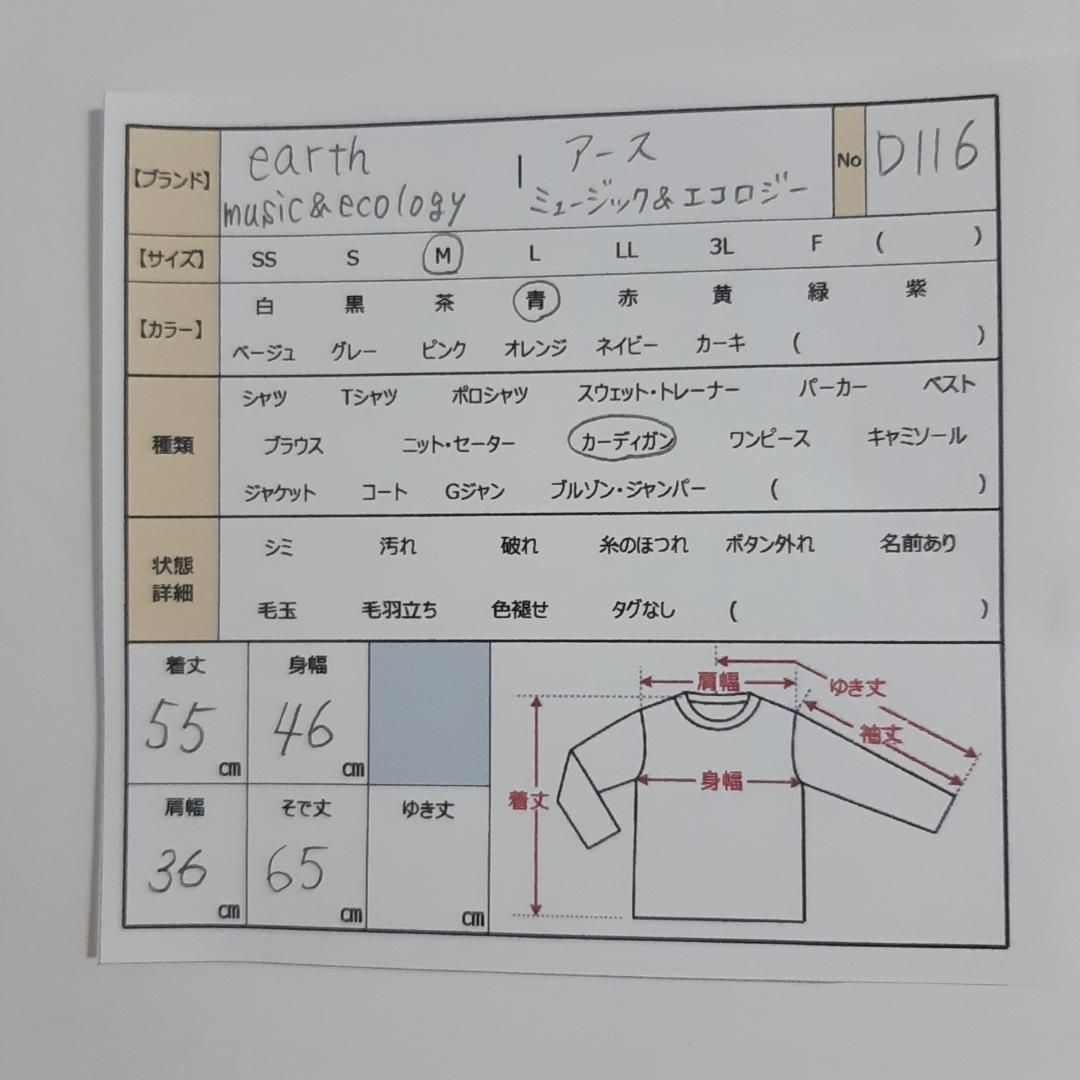 【ブランド】 earth | アース No D116
music&ecology ミュージック&エコロジー
【サイズ】 SS S M L LL 3L F ( )
【カラー】 白 黒 茶 青 赤 黄 緑 紫
ベージュ グレー ピンク オレンジ ネイビー カーキ ( )
種類 シャツ Tシャツ ポロシャツ スウェット・トレーナー パーカー ベスト
ブラウス ニット・セーター カーディガン ワンピース キャミソール
ジャケット コート Gジャン ブルゾン・ジャンパー ( )
状態
詳細
シミ 汚れ 破れ 糸のほつれ ボタン外れ 名前あり
毛玉 毛羽立ち 色褪せ タグなし ( )
着丈 身幅
55 cm 46 cm
肩幅 そで丈 ゆき丈
36 cm 65 cm cm
肩幅 ゆき丈
袖丈
着丈 身幅